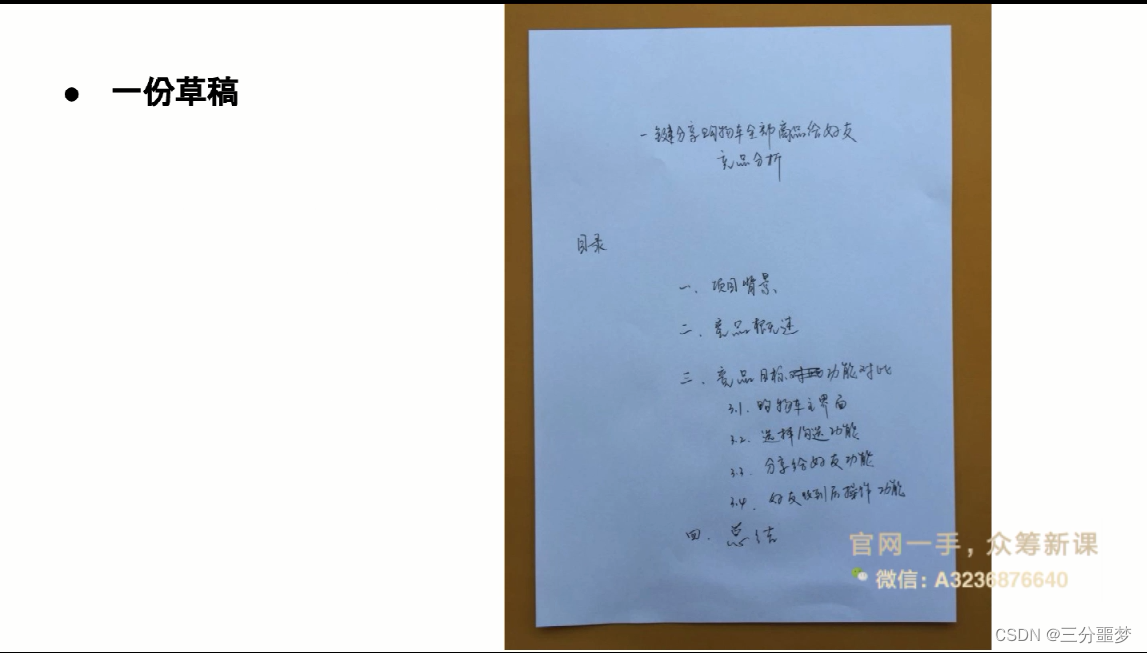 一份草稿
一键分享购物车全部商品给好友
竞品分析
目录
一、项目背景
二、竞品概述
三、竞品目标功能对比
3.1. 购物车主界面
3.2. 选择勾选功能
3.3. 分享给好友功能
3.4. 好友收到后操作功能
四、总结
官网一手，众筹新课
微信：A3236876640
CSDN @三分噩梦